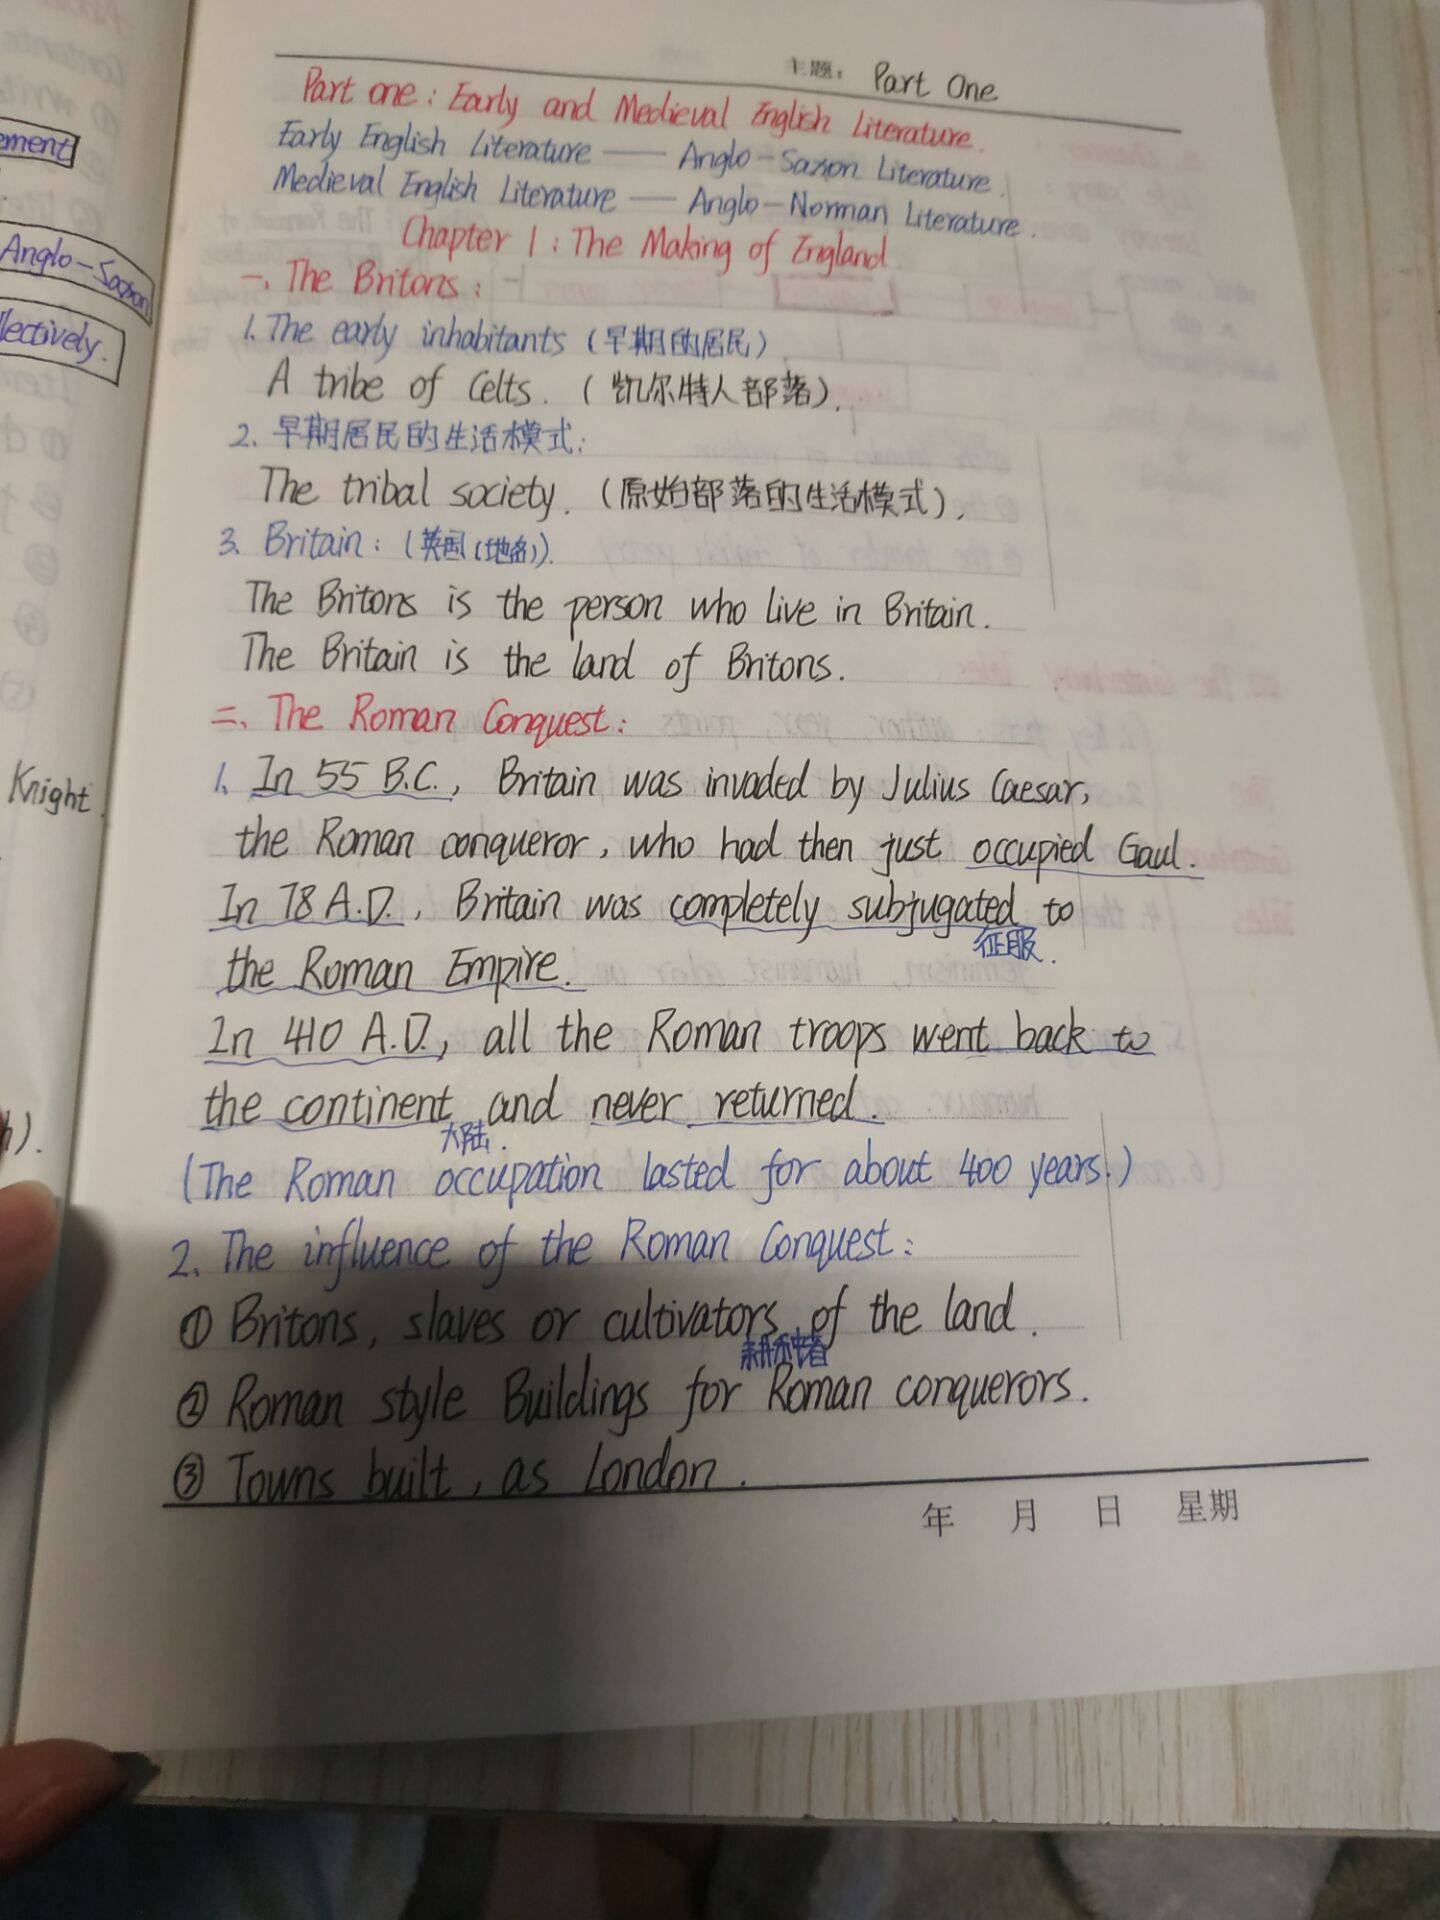 ement
Anglo-Saxon
llectively.
Knight
h).
主题: Part One
Part one: Early and Medieval English Literature.
Early English Literature —— Anglo-Saxon Literature.
Medieval English Literature —— Anglo-Norman Literature.
Chapter 1: The Making of England.
一、The Britons:
1. The early inhabitants (早期的居民).
A tribe of Celts. (凯尔特人部落).
2. 早期居民的生活模式:
The tribal society. (原始部落的生活模式).
3. Britain: (英国(地名)).
The Britons is the person who live in Britain.
The Britain is the land of Britons.
二、The Roman Conquest:
1. In 55 B.C., Britain was invaded by Julius Caesar,
the Roman conqueror, who had then just occupied Gaul.
In 78 A.D., Britain was completely subjugated to
征服.
the Roman Empire.
In 410 A.D., all the Roman troops went back to
the continent and never returned.
大陆.
(The Roman occupation lasted for about 400 years.)
2. The influence of the Roman Conquest:
① Britons, slaves or cultivators of the land.
耕种者
② Roman style Buildings for Roman conquerors.
③ Towns built, as London.
年 月 日 星期